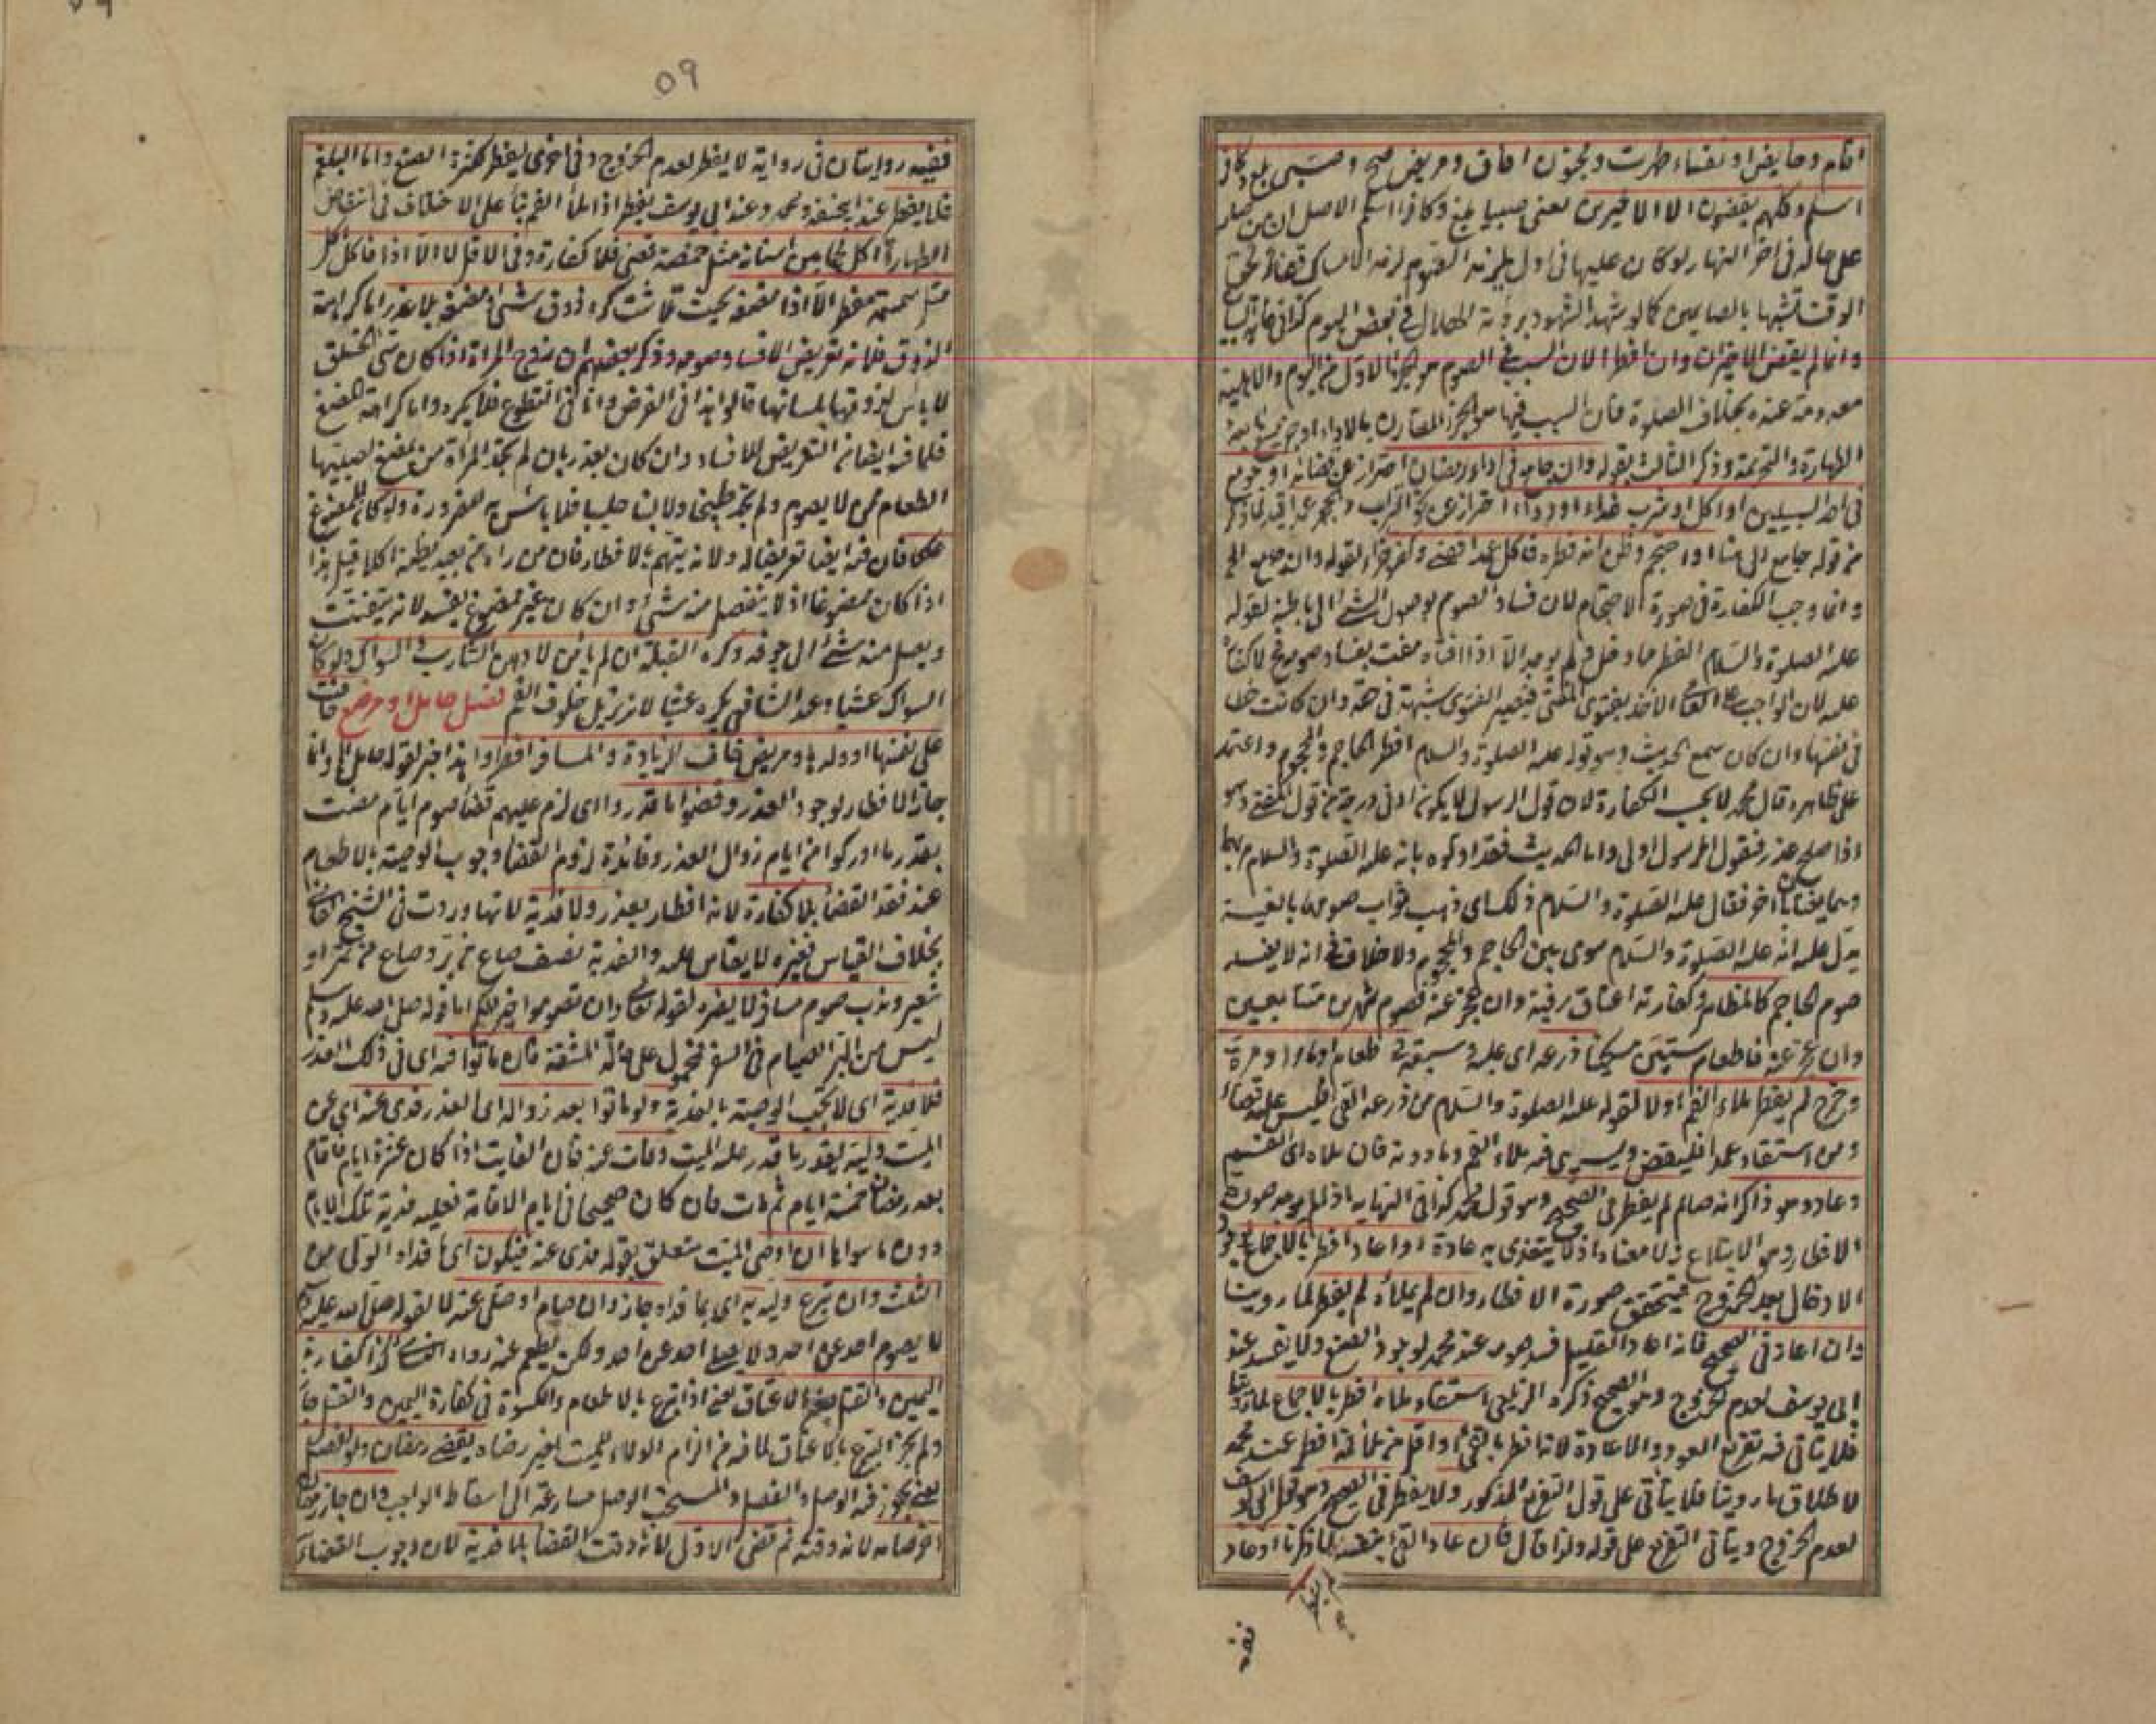 اقام وحايض او نفساء طهرت ومجنون افاق ومريض صح وصبى بلغ وكافر
اسلم وكلهم يقضون الا الاخيرين يعنى صبيا بلغ وكافرا اسلم الاصل ان من صار
على حالة فى اخر النهار لو كان عليها فى اول يلزمه الصوم لزمه الامساك قضاء لحق
الوقت تشبها بالصايمين كما لو شهد الشهود برؤية الهلال فى بعض اليوم كذا فى
وانما لم يقض الاخيران وان افطرا لان السبب فى الصوم هو الجزء الاول من اليوم والاهلية
معدومة عنده بخلاف الصلوة فان السبب فيها هو الجزء المقارن بالاداء او جزء
الطهارة والتحريمة وذكر الثالث بقوله وان جامع فى اداء رمضان احتراز عن قضائه او جومع
فى احد السبيلين او اكل او شرب غذاء او دواء احتراز عن نحو التراب والحجر عمدا قيد لما ذكر
من قوله جامع الى هنا او احتجم وظن انه فطره فاكل عمدا قضى وكفر جزاء لقوله وان جامع الخ
وانما وجب الكفارة فى صورة الاحتجام لان فساد الصوم بوصول الشئ الى باطنه لقوله
عليه الصلوة والسلام الفطر مما دخل ولم يوجد الا اذا افتاه مفت بفساد صومه فح لا كفارة
عليه لان الواجب على العامى الاخذ بفتوى المفتى فيصير الفتوى شبهة فى حقه وان كانت خطاء
فى نفسها وان كان سمع الحديث وهو قوله عليه الصلوة والسلام افطر الحاجم والمحجوم واعتمد
على ظاهره قال محمد لا يجب الكفارة لان قول الرسول لا يكون ادنى درجة من قول المفتى وهو
اذا صلح عذرا فقول الرسول اولى واما الحديث فقد اولوه بانه عليه الصلوة والسلام مر بهما
وهما يغتابان اخر فقال عليه الصلوة والسلام ذلك اى ذهب ثواب صومهما بالغيبة
يدل عليه انه عليه الصلوة والسلام سوى بين الحاجم والمحجوم ولا خلاف فى انه لا يفسد
صوم الحاجم كالمظاهر وكفارته اعتاق رقبة وان عجز عنه فصوم شهرين متتابعين
وان عجز عنه فاطعام ستين مسكينا ذرعه اى غلبه وسبقه قئ طعام او ماء او مرة
وخرج لم يفطر ملاء الفم او لا لقوله عليه الصلوة والسلام من ذرعه القئ فليس عليه قضاء
ومن استقاء عمدا فليقض ويستوى فيه ملاء الفم وما دونه فان ملاه اى القئ الفم
وعاد وهو ذاكر انه صام لم يفطر فى الصحيح وهو قول محمد كذا فى النهاية اذ لم يوجد صورة
الافطار وهو الابتلاع ولا معناه اذ لا يتغذى به عادة او اعاد افطر بالاجماع لوجود
الادخال بعد الخروج فيتحقق صورة الافطار وان لم يملاه لم يفطر لما روينا
وان اعاد فى الصحيح فانه اعاد القليل فسد صومه عند محمد لوجود الصنع ولا يفسد عند
ابى يوسف لعدم الخروج وهو الصحيح ذكره الزيلعى استقاء ملاه افطر بالاجماع لما روينا
فلا يتاتى فيه تفريع العود والاعادة لانه افطر بالقئ او اقل من ملأ فمه افطر عند محمد
لاطلاق ما روينا فلا يتأتى على قوله التفريع المذكور ولا يفطر فى الصحيح وهو قول ابى يوسف
لعدم الخروج ويتاتى التفريع على قوله ولذا قال فان عاد القئ بنفسه لما ذكرنا او عاد
٥٩
ففيه روايتان فى رواية لا يفطر لعدم الخروج وفى اخرى يفطر لكثرة الصنع واما البلغم
فلا يفطر عند ابى حنيفة ومحمد وعند ابى يوسف يفطر اذا ملأ الفم بناء على الاختلاف فى انتقاض
الطهارة اكل لحما بين اسنانه مثل حمصة قضى فلا كفارة وفى الاقل لا الا اذا فاكل اكل
مثل سمسمة مفطر الا اذا مضغه بحيث تلاشت كره ذوق شئ ومضغه بلا عذر اما كراهة
الذوق فلما فيه تعريض الافساد صومه وذكر بعضهم ان زوج المراة اذا كان سئ الخلق
لا باس لذوقها بلسانها قالوا هذا فى الفرض واما فى التطوع فلا يكره واما كراهة المضغ
فلما فيه ايضا من التعريض للافساد وان كان بعذر بان لم تجد المراة من يمضغ لصبيها
الطعام ممن لا يصوم ولم تجد طبيخا ولا لبنا حليبا فلا باس به للضرورة ولو كان الممضوغ
علكا فان فيه ايضا تعريضا له ولانه يتهم بالافطار فان من راه من بعيد يظنه اكلا قيل هذا
اذا كان ممضوغا اذ لا ينفصل منه شئ وان كان غير ممضوغ يفسد لانه يتفتت
ويصل منه شئ الى جوفه وكره القبلة ان لم يأمن لا دهن الشارب والسواك ولو كان
السواك عشيا وعند الشافعى يكره عشيا لانه يزيل خلوف الفم فصل حامل او مرضع خافت
على نفسها او ولدها ومريض خاف الزيادة والمسافر افطروا هذا خبر لقوله حامل الخ وانما
جاز الافطار لوجود العذر وقضوا ما قدروا اى لزم عليهم قضاء صوم ايام مضت
بقدر ما ادركوا من ايام زوال العذر وفائدة لزوم القضاء وجوب الوصية بالاطعام
عند فقد القضاء بلا كفارة لانه افطار بعذر ولا فدية لانها وردت فى الشيخ الفانى
بخلاف القياس فغيره لا يقاس عليه والفدية نصف صاع من بر وصاع من تمر او
شعير وندب صوم مسافر لا يضره لقوله تعالى وان تصوموا خير لكم اما قوله صلى الله عليه وسلم
ليس من البر الصيام فى السفر محمول على حالة المشقة فان ماتوا فيه اى فى ذلك العذر
فلا فدية اى لا يجب الوصية بالفدية ولو ماتوا بعد زواله اى العذر فدى عنه اى عن
الميت وليه بقدر ما قدر عليه الميت وفات عنه فان الفايت اذا كان عشرة ايام فاقام
بعد رمضان خمسة ايام ثم مات فان كان صحيحا فى ايام الاقامة فعليه فدية تلك الايام
دون ما سواها ان اوصى الميت متعلق بقوله فدى عنه فيكون اى فداء الولى من
الثلث وان تبرع وليه به اى بما فداه جاز وان صام او صلى عنه لا لقوله صلى الله عليه وسلم
لا يصوم احد عن احد ولا يصلى احد عن احد ولكن يطعم عنه رواه النسائى كذا كفارة
اليمين والقتل بغير الاعتاق يعنى اذا تبرع بالاطعام والكسوة فى كفارة اليمين والقتل جاز
ولم يجز التبرع بالاعتاق لما فيه من الزام الولاء للميت بغير رضاه يقضى رمضان ولو بفصل
يعنى يجوز فيه الوصل والفصل والمستحب الوصل مسارعة الى اسقاط الواجب وان جاز رمضان
اخر صامه لانه وقته ثم قضى الاول لانه وقت القضاء بلا فدية لان وجوب القضاء